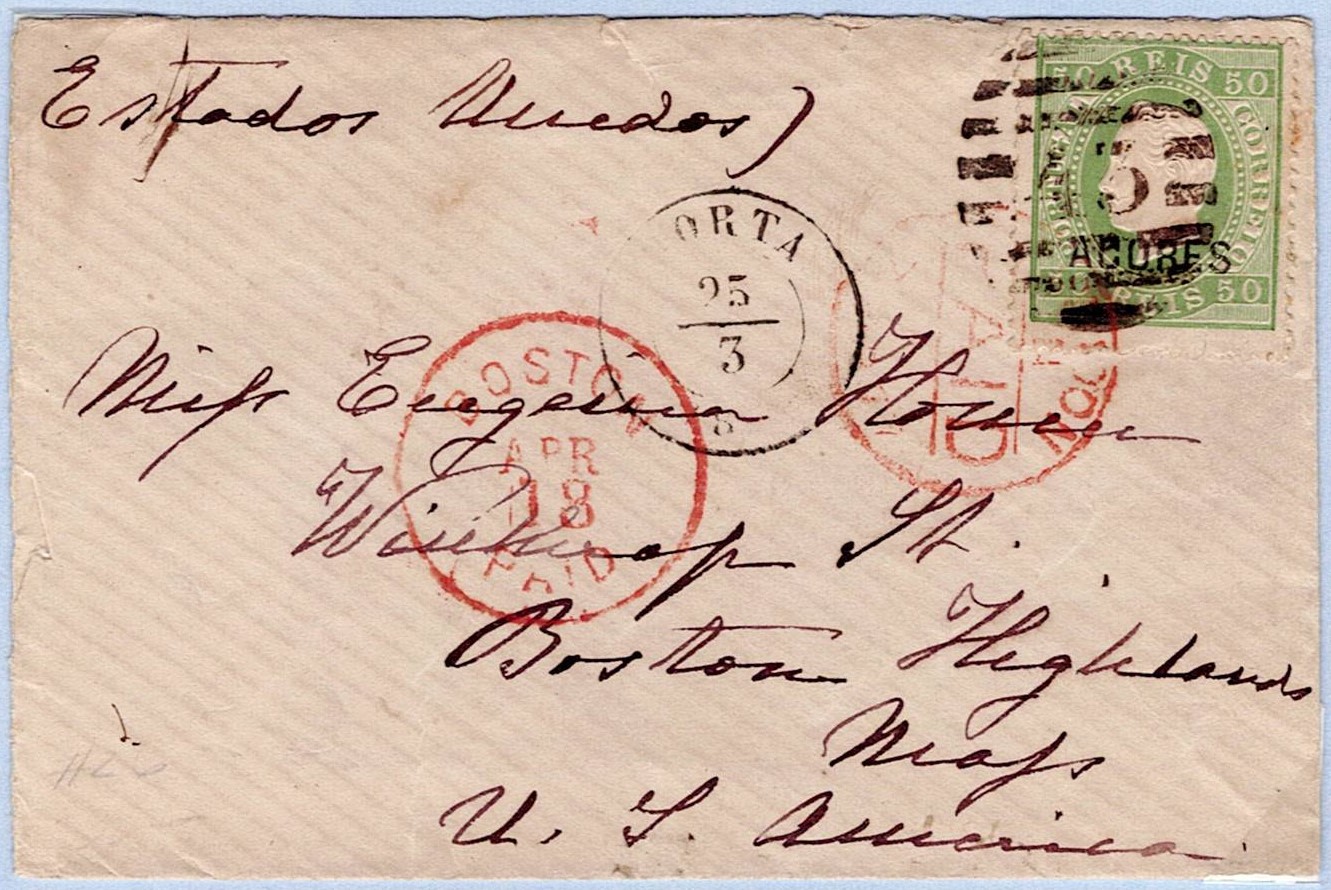 Estados Unedos)
50 REIS 50
CORREIO
AÇORES
REIS 50
ORTA
25
3
BOSTON
APR
18
PAID
PAID
LONDON
Miss Eugenia
Winthrop St.
Boston Highlands
Mass
U. S. America.